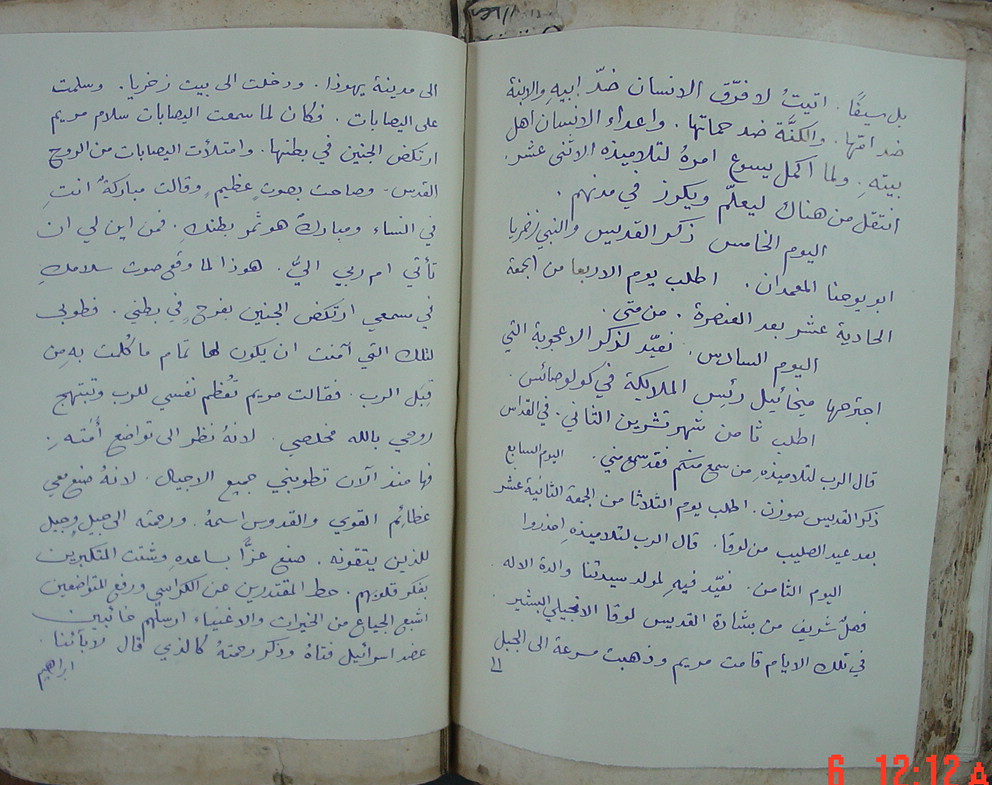 بل سيفًا. اتيتُ لافرّق الانسان ضدّ ابيهِ والابنة
ضد امّها. والكنَّة ضد حماتها. واعداء الانسان اهل
بيتهِ. ولما اكمل يسوع امرهُ لتلاميذه الاثنى عشر.
انتقل من هناك ليعلّم ويكرز في مدنهم.
اليوم الخامس ذكر القديس والنبي زخريا
ابو يوحنا المعمدان. اطلب يوم الاربعا من الجمعة
الحادية عشر بعد العنصرة. من متى.
اليوم السادس. نعيّد لذكر الاعجوبة التي
اجترحها ميخائيل رئيس الملايكة في كولوصائس.
اطلب ثامن شهر تشرين الثاني. في القداس
قال الرب لتلاميذهِ من سمع منكم فقد سمع مني. اليوم السابع
ذكر القديس صوزن. اطلب يوم الثلاثا من الجمعة الثانية عشر
بعد عيد الصليب من لوقا. قال الرب لتلاميذهِ احذروا
اليوم الثامن. نعيّد فيهِ لمولد سيدتنا والدة الاله
فصلٌ شريف من بشارة القديس لوقا الانجيلي البشير.
في تلك الايام قامت مريم وذهبت مسرعة الى الجبل
١١
الى مدينة يهوذا. ودخلت الى بيت زخريا. وسلمت
على اليصابات. فكان لما سمعت اليصابات سلام مريم
ارتكض الجنين في بطنها. وامتلأت اليصابات من الروح
القدس. وصاحت بصوتٍ عظيمٍ وقالت مباركةٌ انتِ
في النساء ومباركٌ هو ثمر بطنكِ. فمن اين لي ان
تأتي ام ربي اليَّ. هوذا لما وقع صوت سلامكِ
في مسمعي ارتكض الجنين بفرحٍ في بطني. فطوبى
لتلك التي آمنت ان يكون لها تمام ما كُلمت به من
قِبَل الرب. فقالت مريم تُعظم نفسي للرب وتبتهج
روحي بالله مخلصي. لانهُ نظر الى تواضع أَمتهِ.
فها منذ الآن تطوبني جميع الاجيال. لانهُ صنع معي
عظائم القوي والقدوس اسمهُ. ورحمته الى جيلٍ وجيل
للذين يتقونه. صنع عزًّا بساعدهِ وشتت المتكبرين
بفكر قلوبهم. حط المقتدرين عن الكراسي ورفع المتواضعين
اشبع الجياع من الخيرات والاغنياء ارسلهم خائبين
عضد اسرائيل فتاهُ وذكر رحمتهُ كالذي قال لآبائنا.
ابراهيم
6 12:12 A